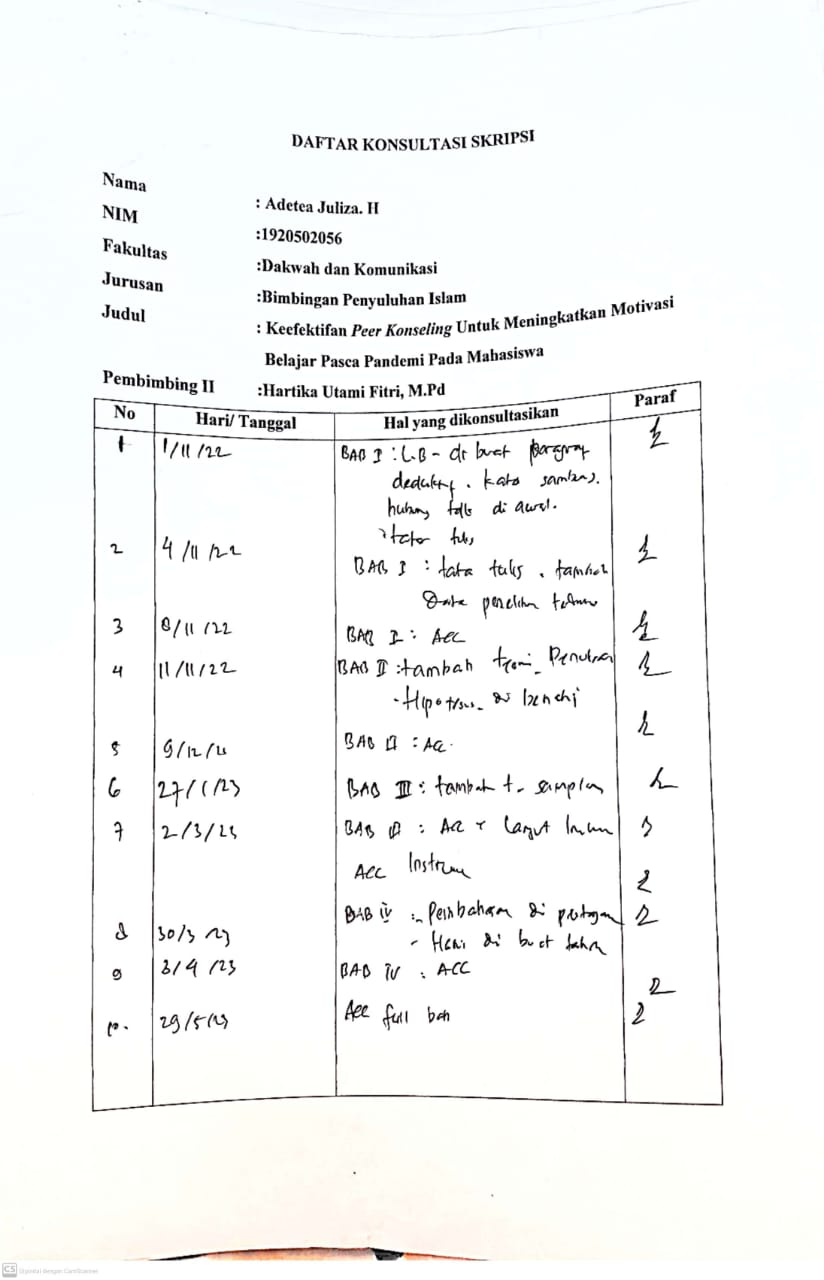 DAFTAR KONSULTASI SKRIPSI
Nama : Adetea Juliza. H
NIM :1920502056
Fakultas :Dakwah dan Komunikasi
Jurusan :Bimbingan Penyuluhan Islam
Judul : Keefektifan Peer Konseling Untuk Meningkatkan Motivasi
Belajar Pasca Pandemi Pada Mahasiswa
Pembimbing II :Hartika Utami Fitri, M.Pd
No Hari/ Tanggal Hal yang dikonsultasikan Paraf
1 1/11/22 BAB I : LB - di buat paragraf
deduktif. kata
di awal.
2 4/11/22
BAB I : tata tulis, tambah
Data
3 8/11/22 BAB I : Acc
4 11/11/22 BAB II : tambah
- Hipotesis
5 9/12/22 BAB II : Acc.
6 27/1/23 BAB III : tambah
7 2/3/23 BAB III : Acc
Acc Instrumen
BAB IV : - Pembahasan di
8 30/3/23 - di buat
9 3/4/23 BAB IV : ACC
10. 29/5/23 Acc full bab
CS Dipindai dengan CamScanner